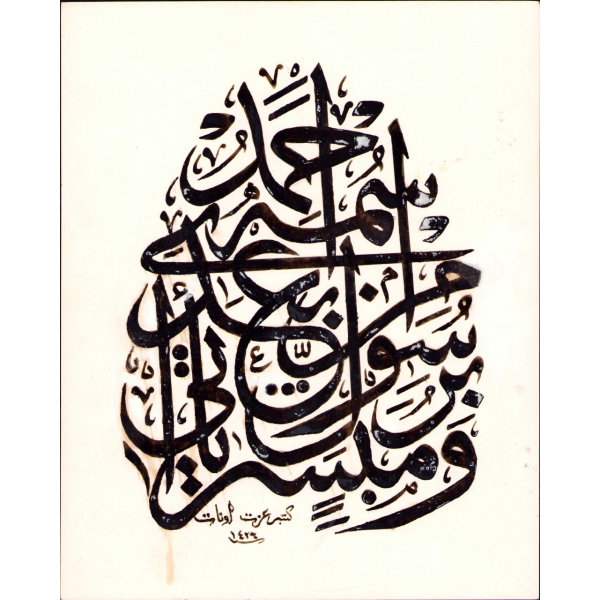 ومبشرا برسول يأتي من بعدي اسمه أحمد
كتبه عزت
١٤٢٩